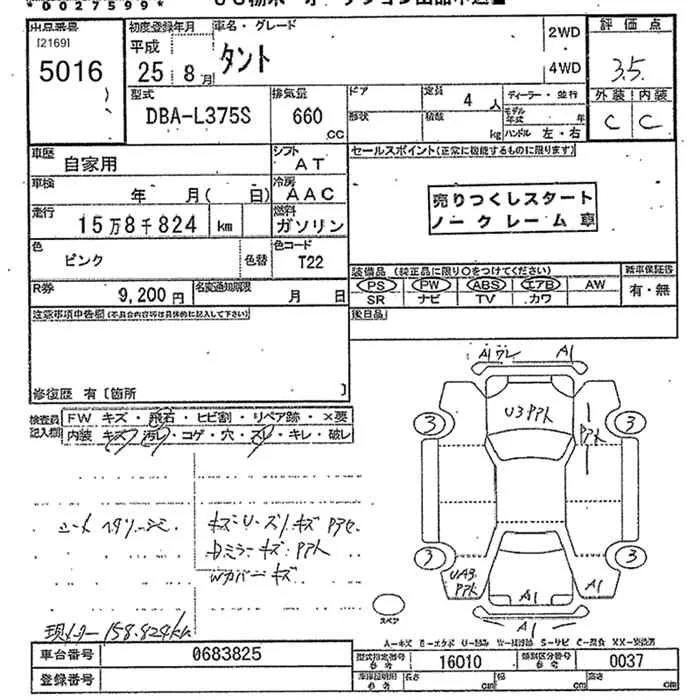 *0027599*
出品番号 [2169] 5016
初度登録年月 平成 25 8月
車名・グレード タント
2WD
4WD
評価点 3.5
外装 C 内装 C
型式 DBA-L375S
排気量 660 CC
ドア 定員 4 人
形状 積載 kg
ディーラー・並行
モデル年式 年
ハンドル 左・右
車歴 自家用
シフト AT
セールスポイント(正常に機能するものに限ります)
車検 年 月( 日)
冷房 AAC
売りつくしスタート
ノークレーム車
走行 15万8千824 km
燃料 ガソリン
色 ピンク 色替
色コード T22
装備品 (純正品に限り○をつけてください)
新車保証書
PS PW ABS エアB AW
有・無
SR ナビ TV カワ
R券 9,200円
名変通知期限 月 日
後日品
注意事項申告欄(不具合内容等は具体的に記入して下さい)
修復歴 有 [箇所 ]
検査員記入欄
FW キズ・飛石・ヒビ割・リペア跡・×要
内装 キズ・汚レ・コゲ・穴・スレ・キレ・破レ
A1ワレ A1
U3 アト
アト
3 3
3 3
A1
A1
A1
スペア
シート ヘタリ
キズ・U・ズリキズ
Dミラーキズ・アト
Wカバーキズ
現メーター158.824km
A-キズ E-エクボ U-凹み W-補修跡 S-サビ C-腐食 XX-交換済
車台番号 0683825
型式指定番号 16010
類別区分番号 0037
登録番号
車庫証明用参考 長さ cm 幅 cm 高さ cm